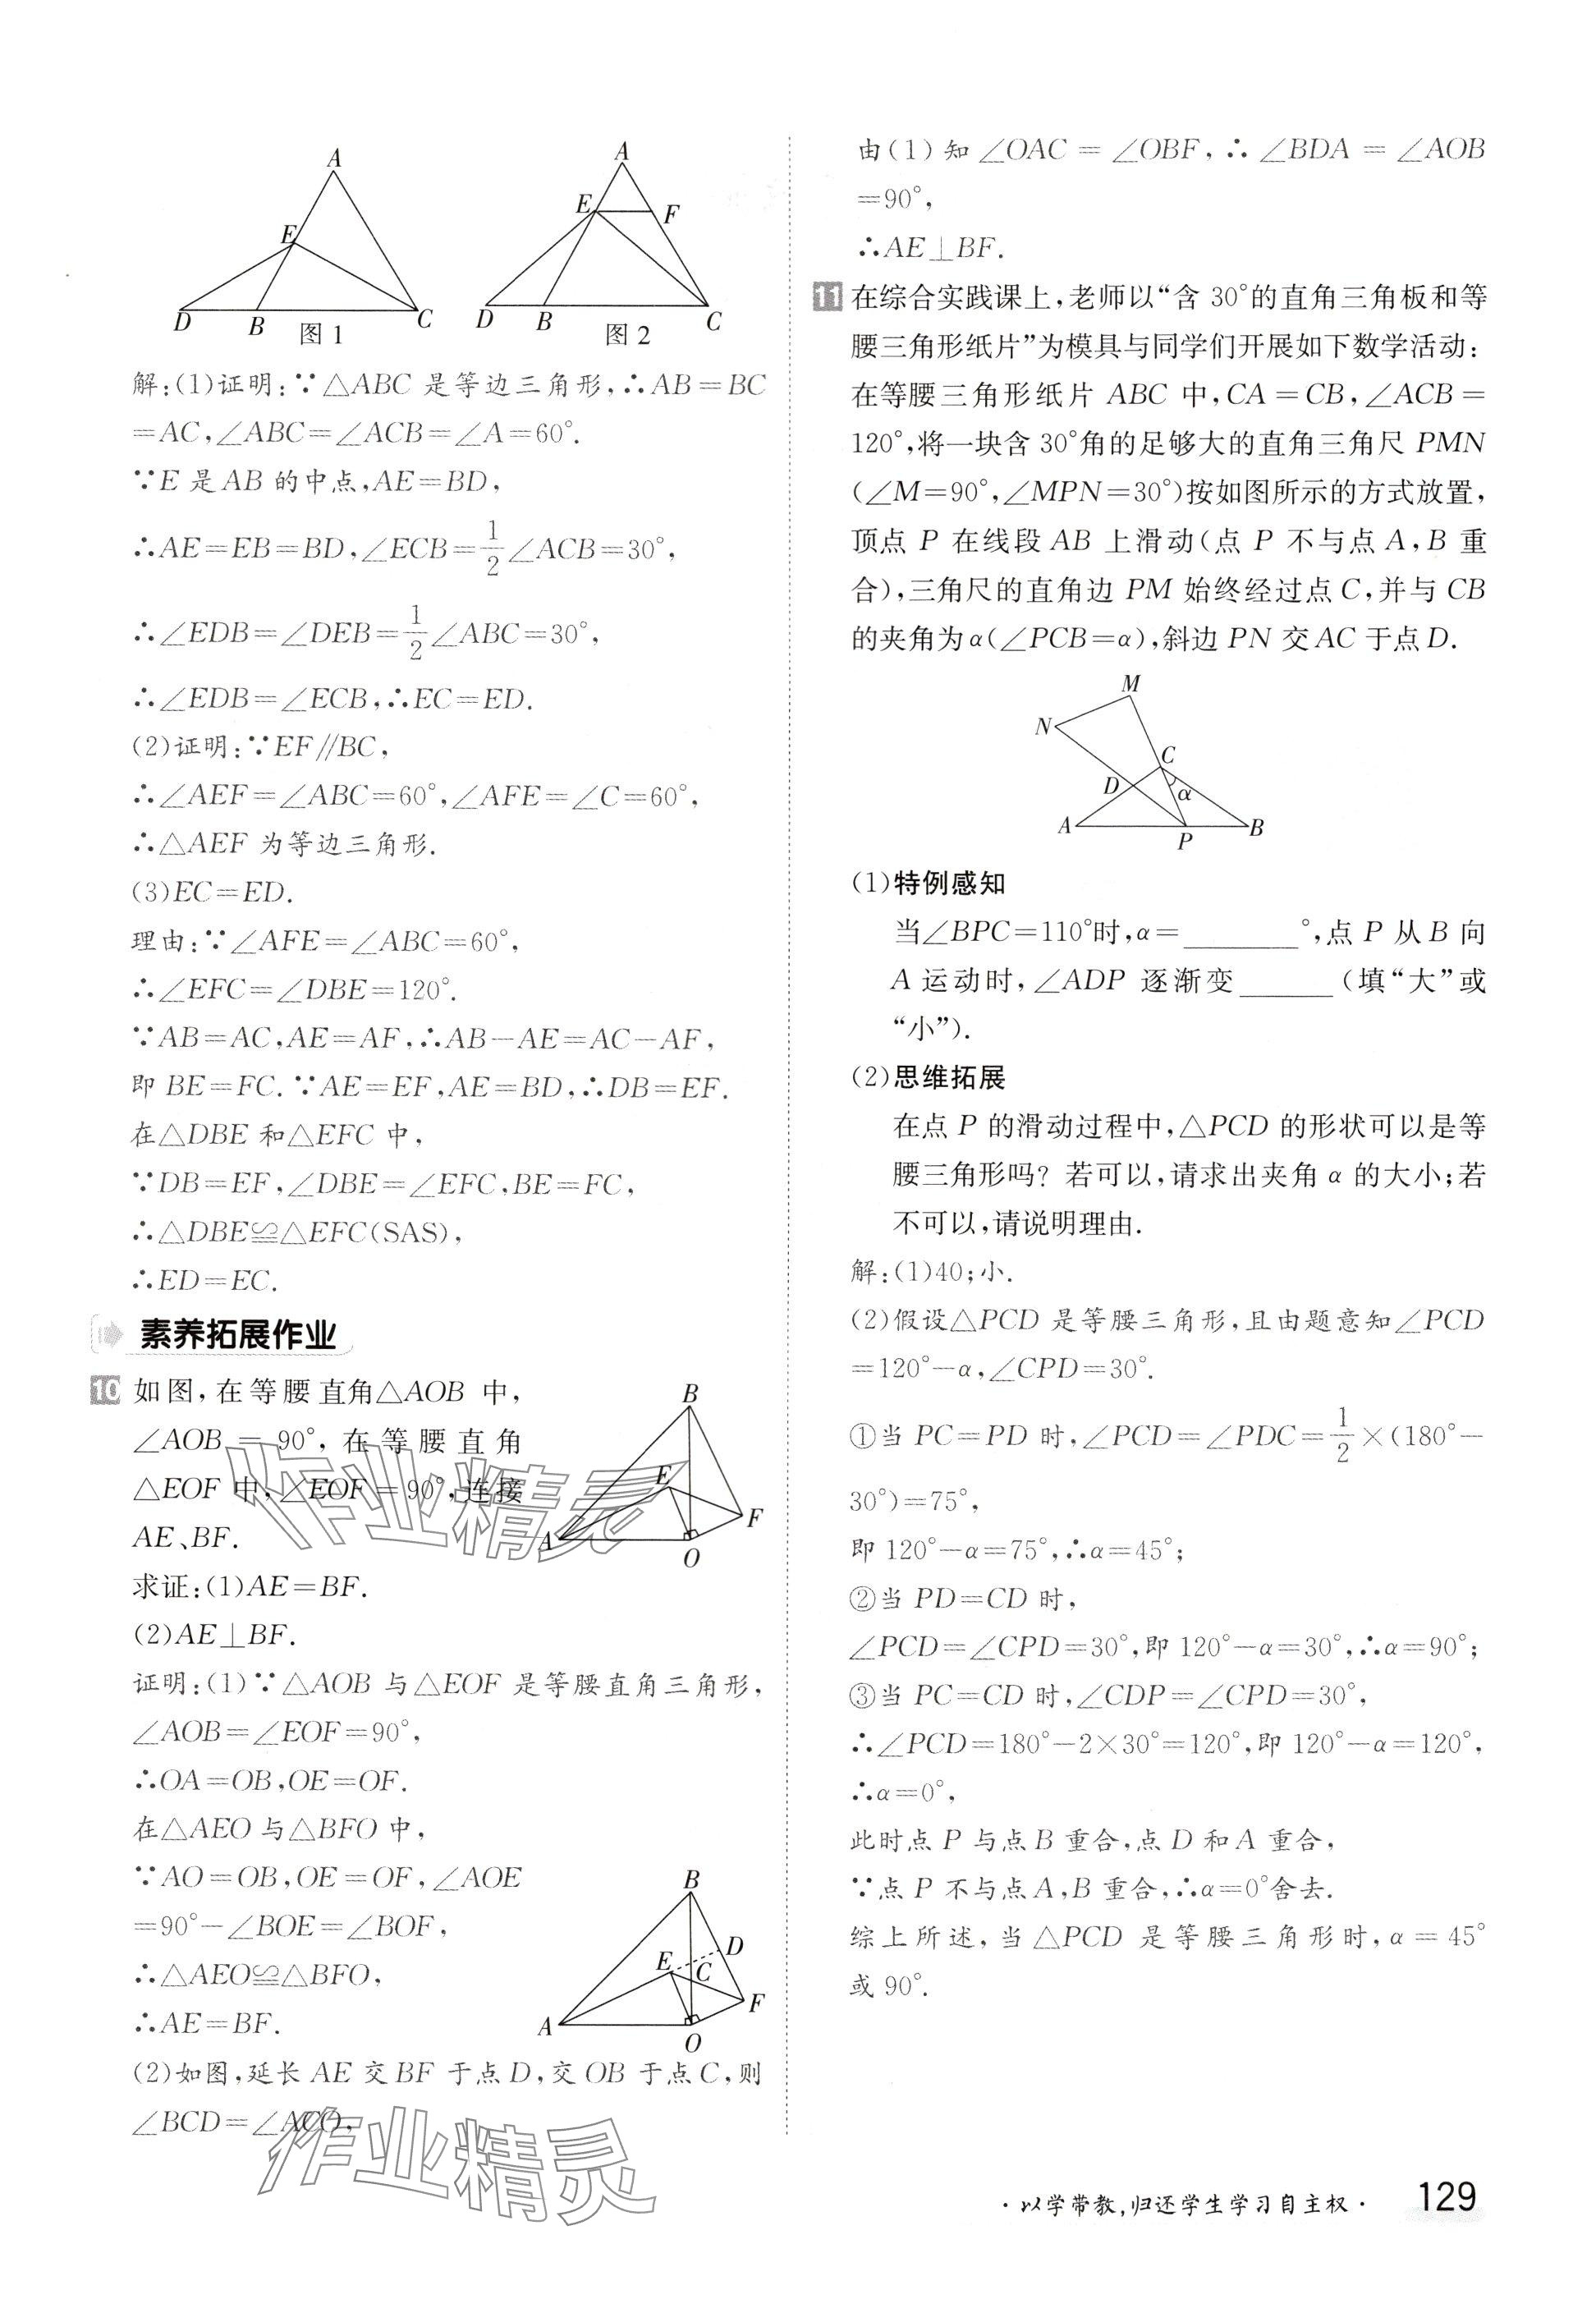 A
E
D B C
图1
A
E F
D B C
图2
解:(1)证明:∵△ABC 是等边三角形,∴AB=BC
=AC,∠ABC=∠ACB=∠A=60°.
∵E 是 AB 的中点,AE=BD,
∴AE=EB=BD,∠ECB=1/2∠ACB=30°,
∴∠EDB=∠DEB=1/2∠ABC=30°,
∴∠EDB=∠ECB,∴EC=ED.
(2)证明:∵EF∥BC,
∴∠AEF=∠ABC=60°,∠AFE=∠C=60°,
∴△AEF 为等边三角形.
(3)EC=ED.
理由:∵∠AFE=∠ABC=60°,
∴∠EFC=∠DBE=120°.
∵AB=AC,AE=AF,∴AB-AE=AC-AF,
即 BE=FC.∵AE=EF,AE=BD,∴DB=EF.
在△DBE 和△EFC 中,
∵DB=EF,∠DBE=∠EFC,BE=FC,
∴△DBE≌△EFC(SAS),
∴ED=EC.
素养拓展作业
10 如图,在等腰直角△AOB 中,
∠AOB=90°,在等腰直角
△EOF 中,∠EOF=90°,连接
AE、BF.
B
E
F
A
O
求证:(1)AE=BF.
(2)AE⊥BF.
证明:(1)∵△AOB 与△EOF 是等腰直角三角形,
∠AOB=∠EOF=90°,
∴OA=OB,OE=OF.
在△AEO 与△BFO 中,
∵AO=OB,OE=OF,∠AOE
=90°-∠BOE=∠BOF,
∴△AEO≌△BFO,
∴AE=BF.
B
D
E C
F
A
O
(2)如图,延长 AE 交 BF 于点 D,交 OB 于点 C,则
∠BCD=∠ACO,
由(1)知∠OAC=∠OBF,∴∠BDA=∠AOB
=90°,
∴AE⊥BF.
11 在综合实践课上,老师以“含 30°的直角三角板和等
腰三角形纸片”为模具与同学们开展如下数学活动:
在等腰三角形纸片 ABC 中,CA=CB,∠ACB=
120°,将一块含 30°角的足够大的直角三角尺 PMN
(∠M=90°,∠MPN=30°)按如图所示的方式放置,
顶点 P 在线段 AB 上滑动(点 P 不与点 A,B 重
合),三角尺的直角边 PM 始终经过点 C,并与 CB
的夹角为 α(∠PCB=α),斜边 PN 交 AC 于点 D.
M
N
C
D
α
A
P
B
(1)特例感知
当∠BPC=110°时,α=________°,点 P 从 B 向
A 运动时,∠ADP 逐渐变______(填“大”或
“小”).
(2)思维拓展
在点 P 的滑动过程中,△PCD 的形状可以是等
腰三角形吗?若可以,请求出夹角 α 的大小;若
不可以,请说明理由.
解:(1)40;小.
(2)假设△PCD 是等腰三角形,且由题意知∠PCD
=120°-α,∠CPD=30°.
①当 PC=PD 时,∠PCD=∠PDC=1/2×(180°-
30°)=75°,
即 120°-α=75°,∴α=45°;
②当 PD=CD 时,
∠PCD=∠CPD=30°,即 120°-α=30°,∴α=90°;
③当 PC=CD 时,∠CDP=∠CPD=30°,
∴∠PCD=180°-2×30°=120°,即 120°-α=120°,
∴α=0°,
此时点 P 与点 B 重合,点 D 和 A 重合,
∵点 P 不与点 A,B 重合,∴α=0°舍去.
综上所述,当△PCD 是等腰三角形时,α=45°
或 90°.
作业精灵
作业精灵
·以学带教,归还学生学习自主权· 129